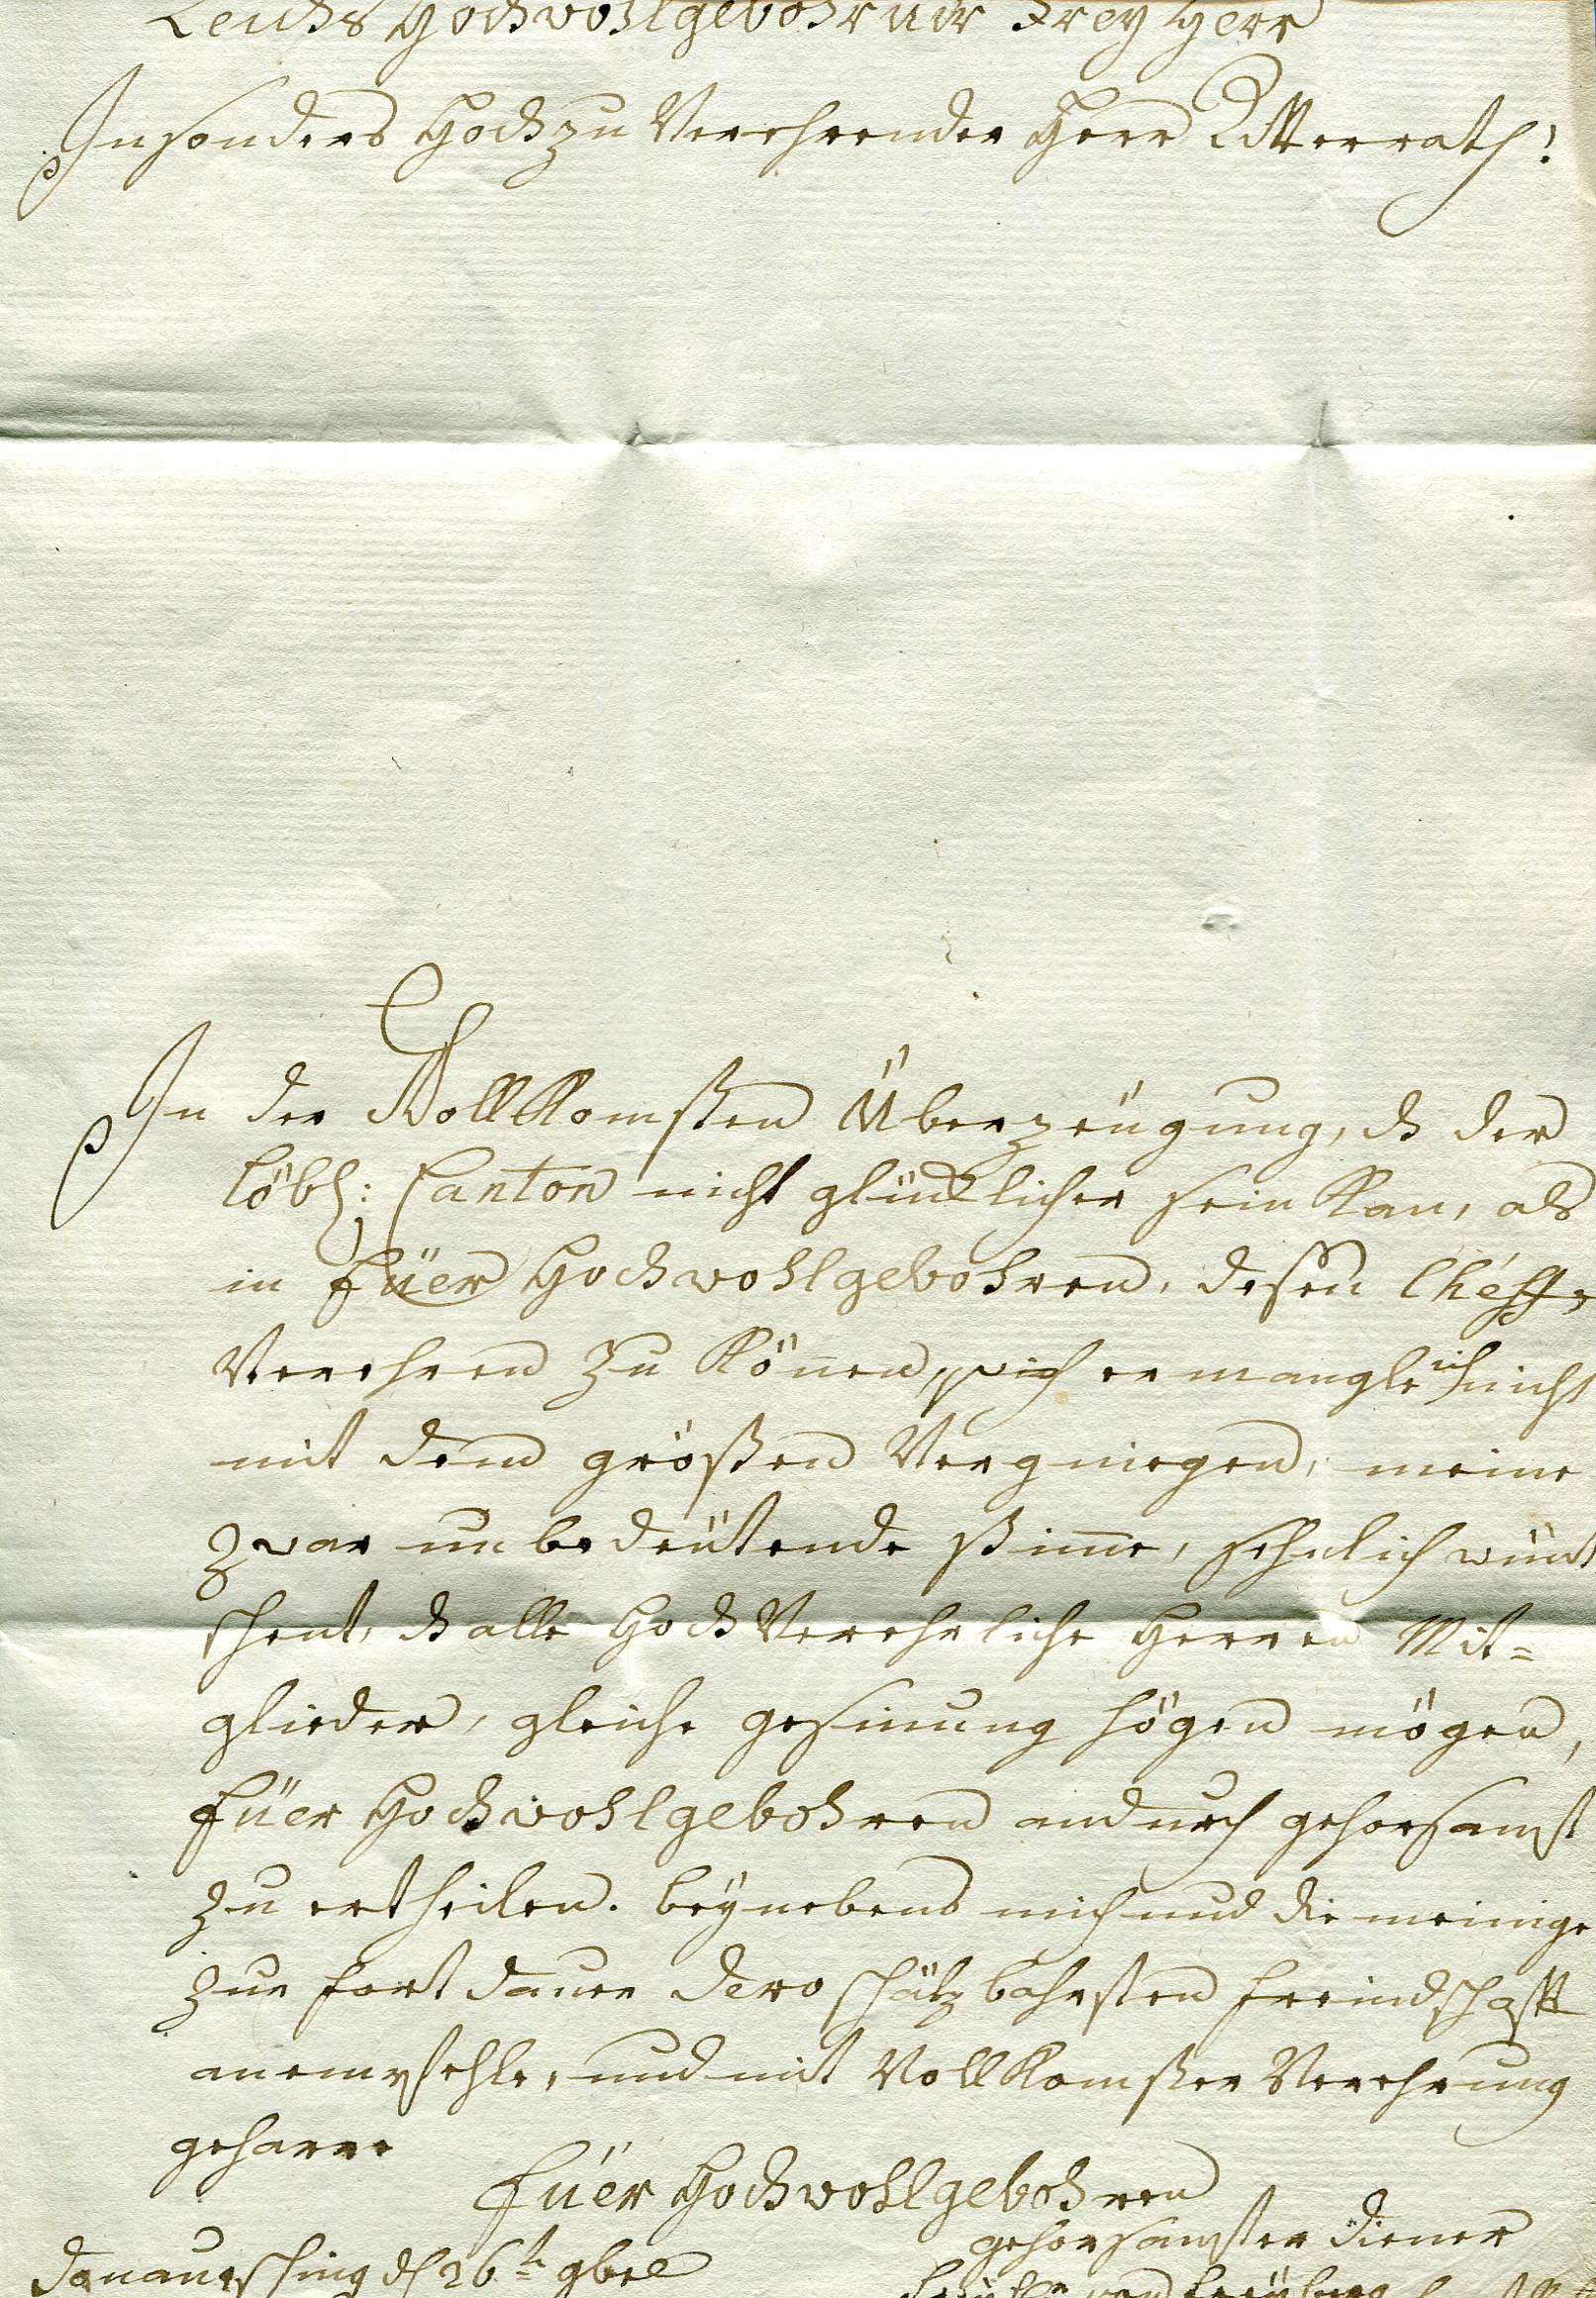 Reichs Hochwohlgebohrner Frey Herr
Insonders Hochzu Verehrender Herr Ritterrath!
In der Vollkomsten Überzeügung, ds der
löbl: Canton nicht glücklicher sein kan, als
in Eüer Hochwohlgebohren, dessen Chéff,
Verehren zu können, ermangle ich nicht
mit dem grösten Vergniegen, meine
zwar unbedeütende stimme, sehnlich wünt
schent, ds alle Hoch Verehrliche Herren Mit=
glieder, gleiche gesinung högen mögen,
Eüer Hochwohlgebohren andurch gehorsamst
zu ertheilen. beynebens mich und die meinige
zur fortdauer dero schätzbahrsten freindschafft
anempfehle, und mit Vollkomster Verehrung
geharre
Eüer Hochwohlgebohren
gehorsamster diener
Donaueshing d 26t 9bre
von Freyberg